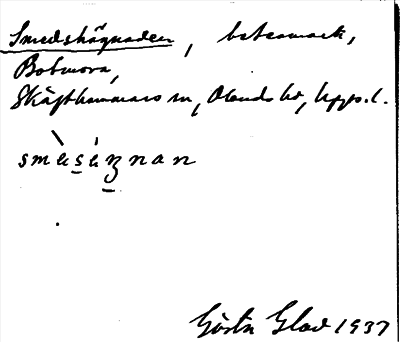 Smedshägnaden, betesmark,
Botmora,
Skäfthammars sn, Olands hd, Upps. l.
smèsẹ́ʒnan
Gösta Glad 1937